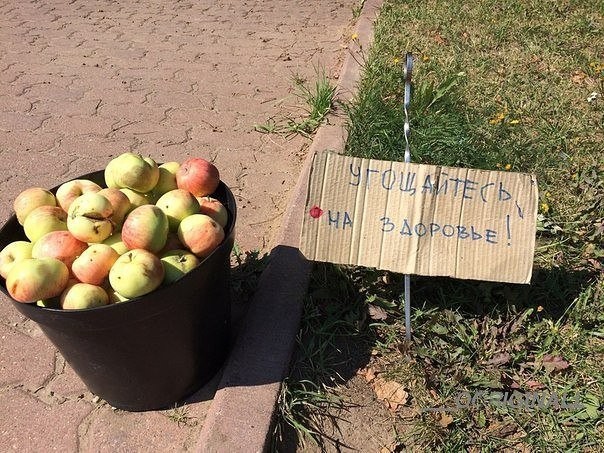 УГОЩАЙТЕСЬ,
НА ЗДОРОВЬЕ!